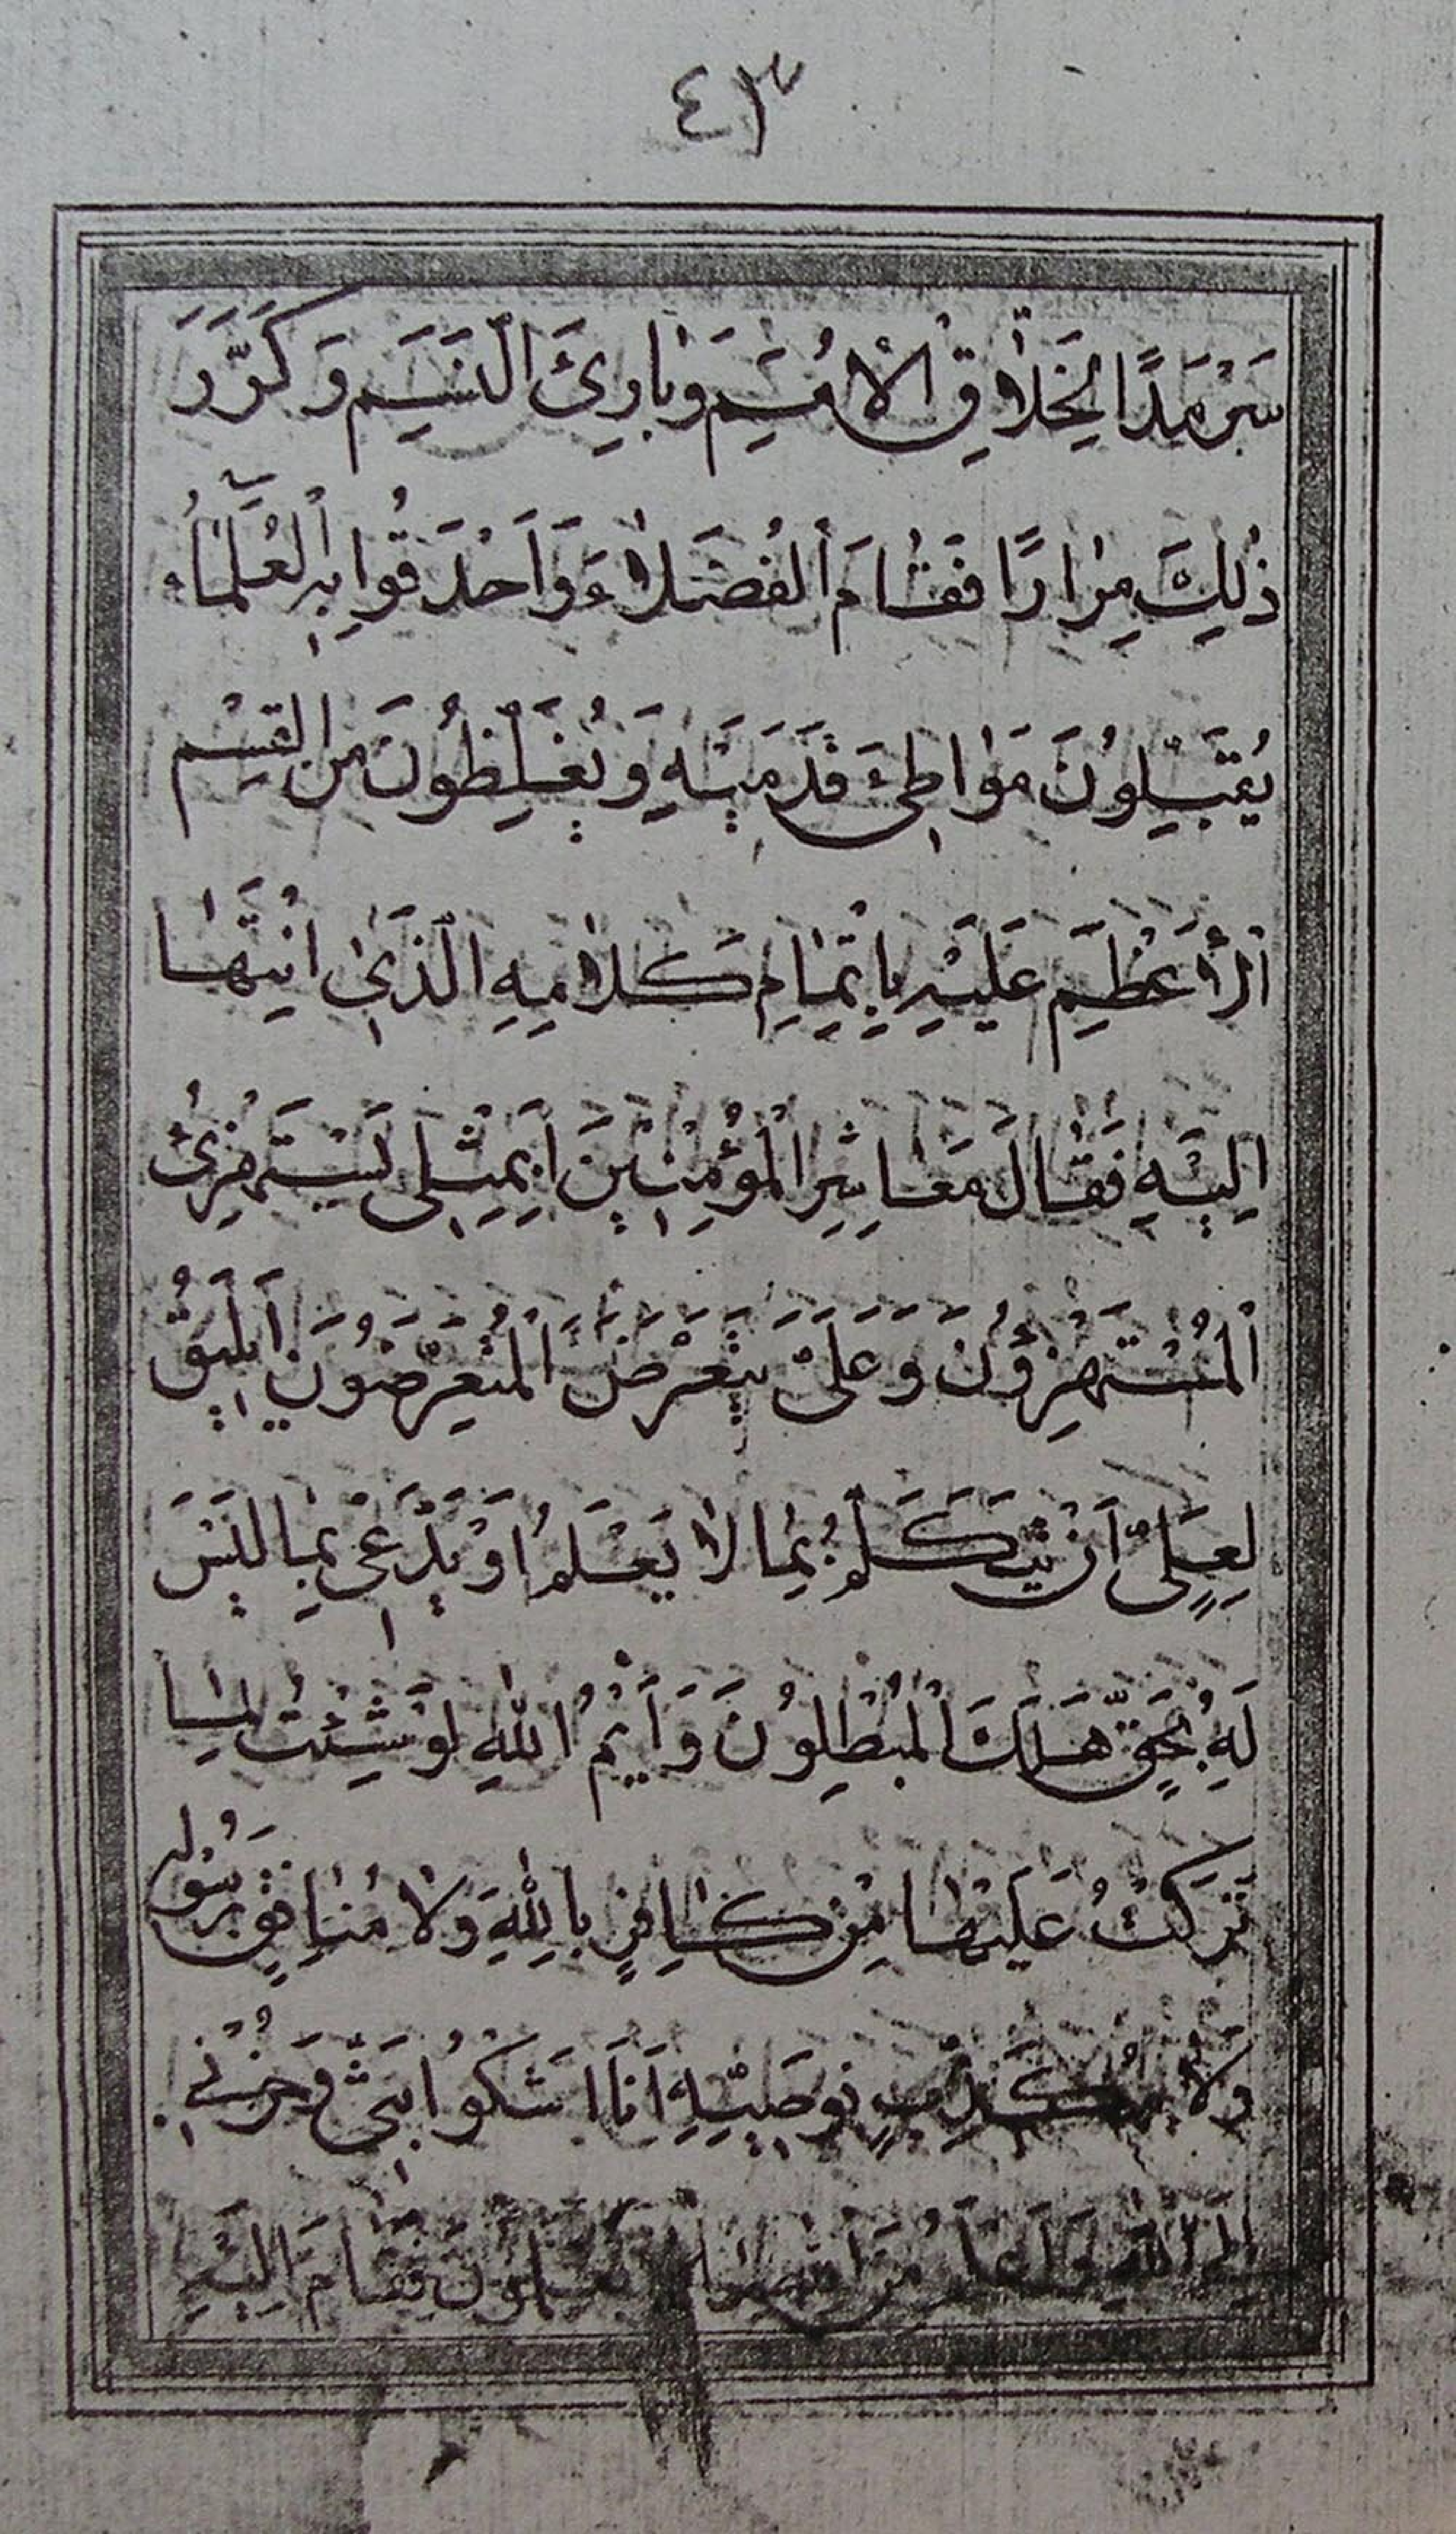 ٤٣
سَرْمَدًا لِخَلَّاقِ الْأُمَمِ وَبَارِئِ النَّسَمِ وَكَرَّرَ
ذٰلِكَ مِرَارًا فَقَامَ الْفُضَلَاءُ وَأَحْدَقُوا بِهِ الْعُلَمَاءُ
يُقَبِّلُونَ مَوَاطِئَ قَدَمَيْهِ وَيُغَلِّظُونَ مِنَ الْقَسَمِ
الْأَعْظَمِ عَلَيْهِ بِإِتْمَامِ كَلَامِهِ الَّذِي انْتَهَا
إِلَيْهِ فَقَالَ مَعَاشِرَ الْمُؤْمِنِينَ أَبِمِثْلِي يَسْتَهْزِئُ
الْمُسْتَهْزِؤُنَ وَعَلَيَّ يَتَعَرَّضُ الْمُتَعَرِّضُونَ أَيَلِيقُ
لِعَلِيٍّ أَنْ يَتَكَلَّمُ بِمَا لَا يَعْلَمُ أَوْ يَدَّعِيَ بِمَا لَيْسَ
لَهُ بِحَقٍّ هَلَكَ الْمُبْطِلُونَ وَأَيْمُ اللهِ لَوْ شِئْتُ لَمَا
تَرَكْتُ عَلَيْهَا مِنْ كَافِرٍ بِاللهِ وَلَا مُنَافِقٍ بِرَسُولِهِ
وَلَا مُكَذِّبٍ بِوَصِيِّهِ أَنَا أَشْكُوا بَثِّي وَحُزْنِي
إِلَى اللهِ وَأَعْلَمُ مِنَ اللهِ مَا لَا تَعْلَمُونَ فَقَامَ إِلَيْهِ